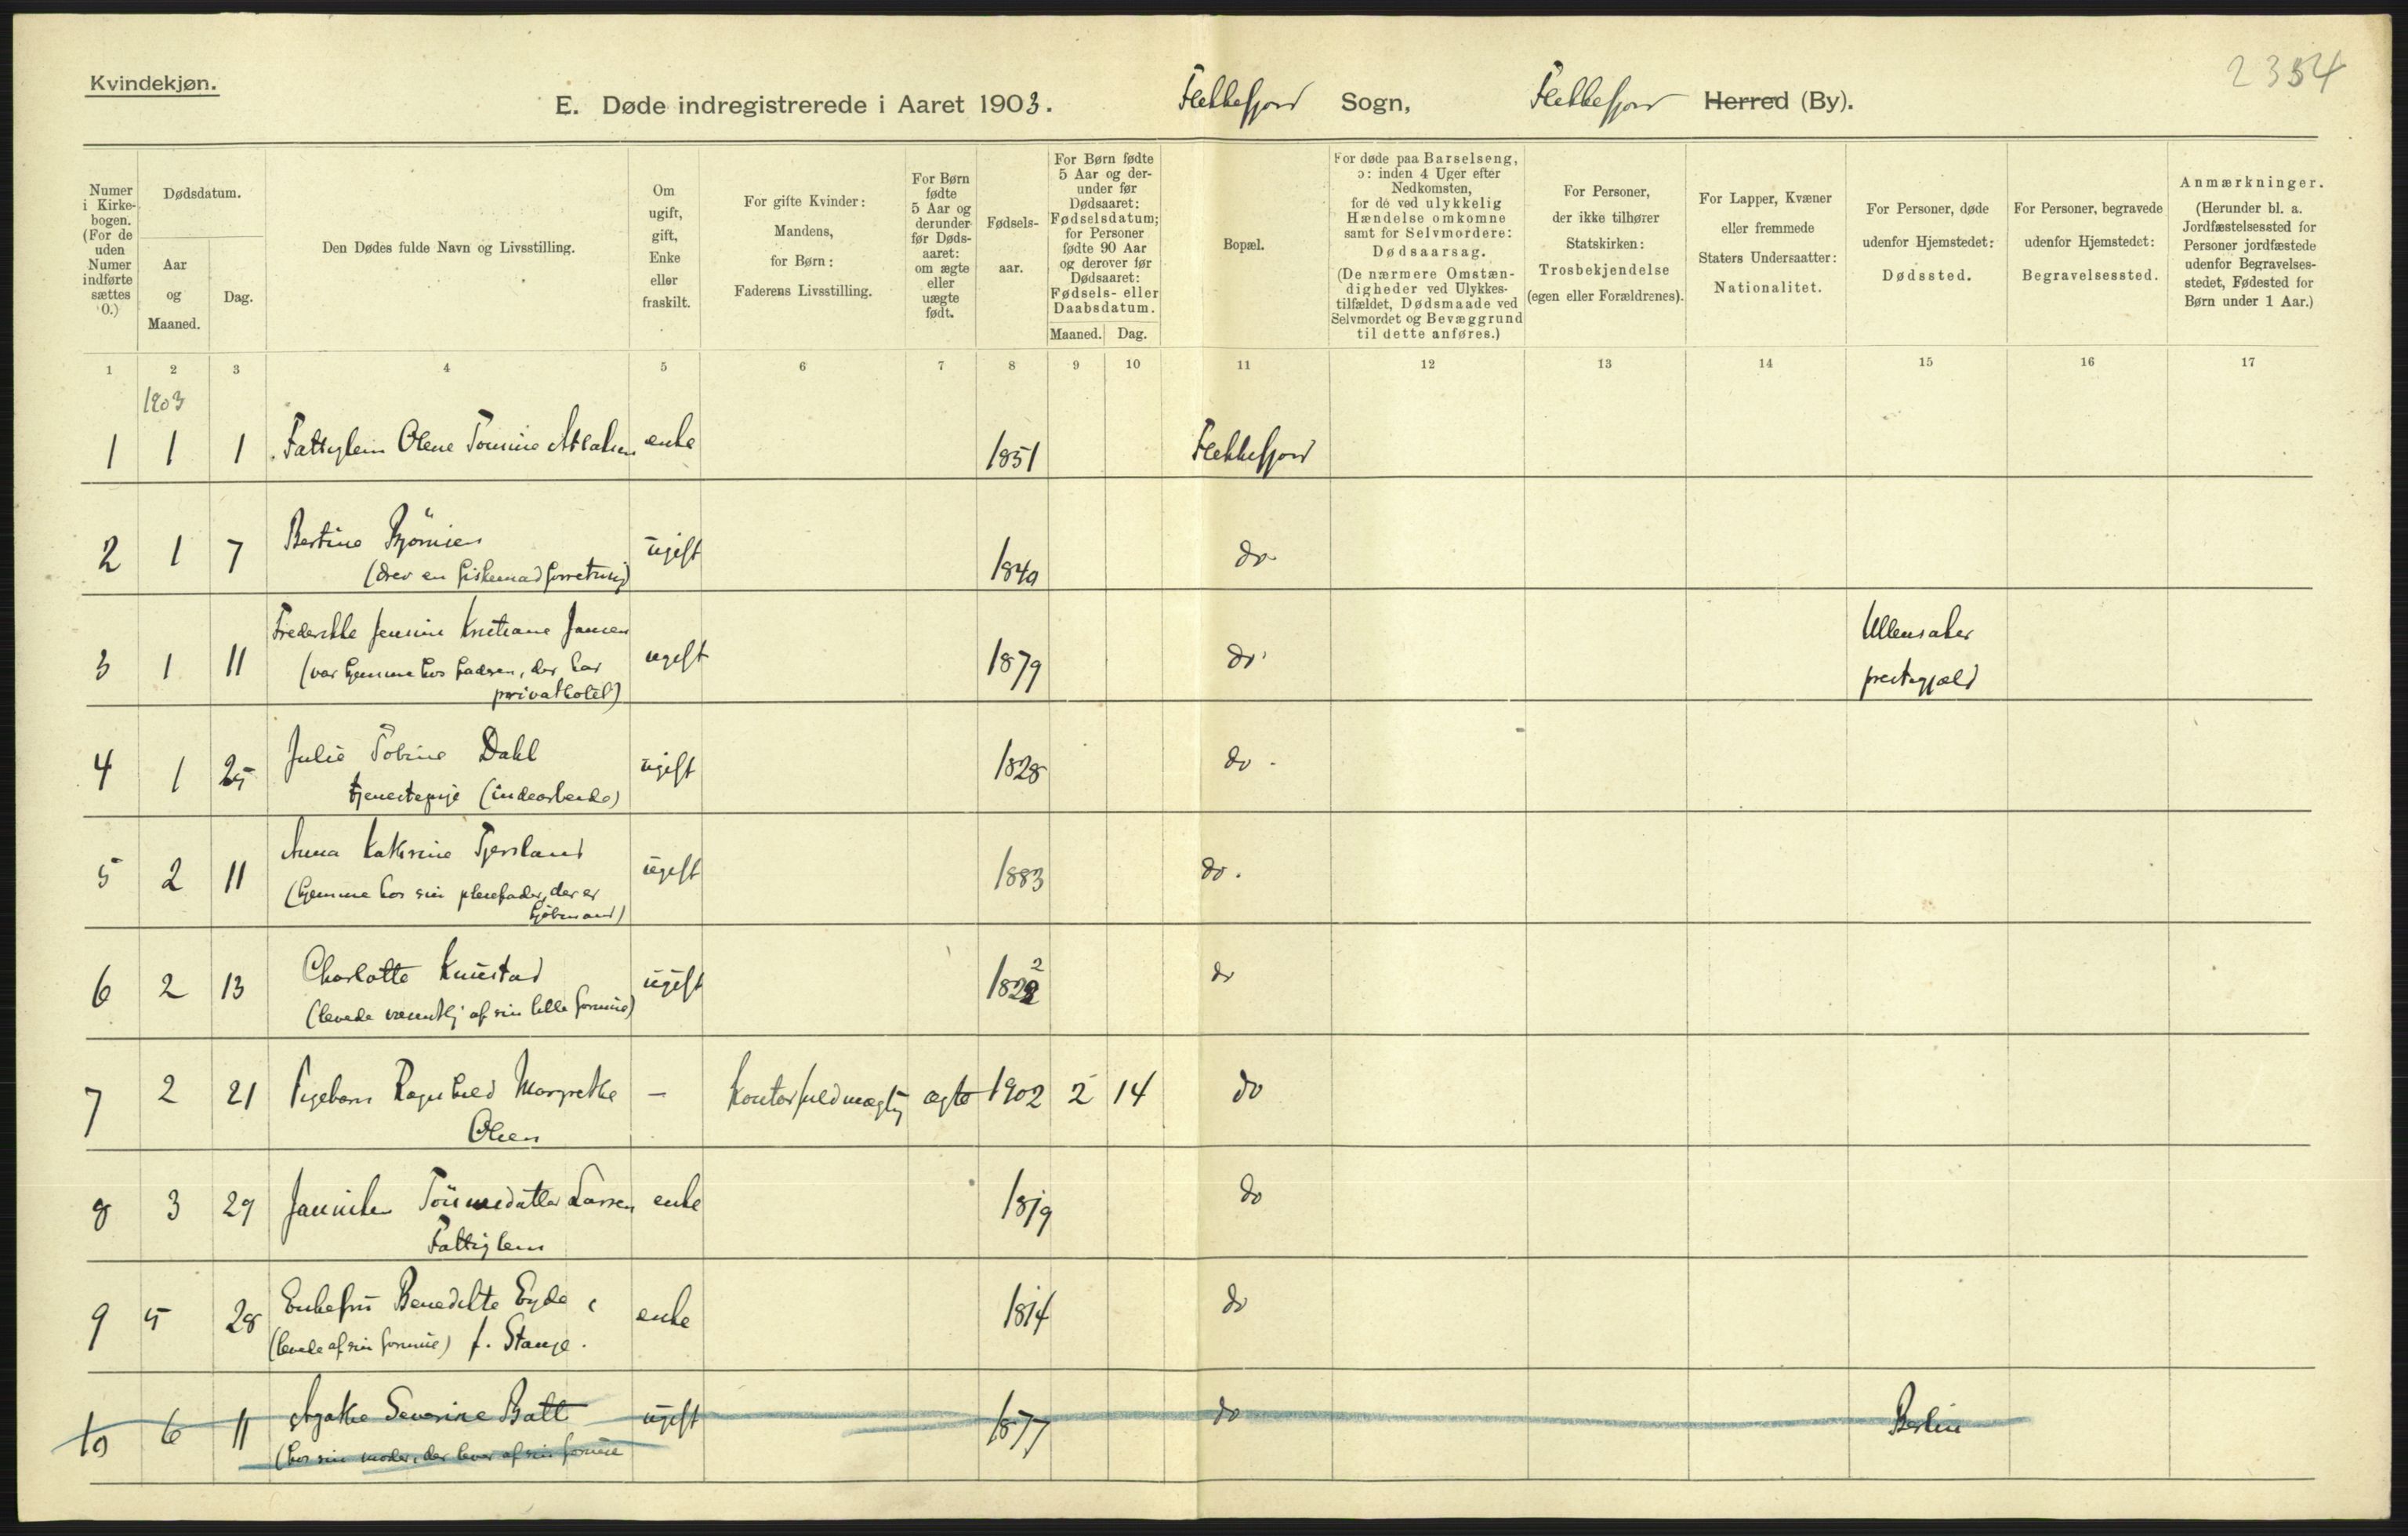 2354
Kvindekjøn.
E. Døde indregistrerede i Aaret 1903. Flekkefjord Sogn, Flekkefjord Herred (By).
Numer i Kirkebogen. (For de uden Numer indførte sættes 0.)
Dødsdatum.
Aar og Maaned.
Dag.
Den Dødes fulde Navn og Livsstilling.
Om ugift, gift, Enke eller fraskilt.
For gifte Kvinder: Mandens, for Børn: Faderens Livsstilling.
For Børn fødte 5 Aar og derunder før Dødsaaret: om ægte eller uægte født.
Fødselsaar.
For Børn fødte 5 Aar og derunder før Dødsaaret: Fødselsdatum; for Personer fødte 90 Aar og derover før Dødsaaret: Fødsels- eller Daabsdatum.
Maaned. Dag.
Bopæl.
For døde paa Barselseng, ɔ: inden 4 Uger efter Nedkomsten, for de ved ulykkelig Hændelse omkomne samt for Selvmordere: Dødsaarsag. (De nærmere Omstændigheder ved Ulykkestilfældet, Dødsmaade ved Selvmordet og Bevæggrund til dette anføres.)
For Personer, der ikke tilhører Statskirken: Trosbekjendelse (egen eller Forældrenes).
For Lapper, Kvæner eller fremmede Staters Undersaatter: Nationalitet.
For Personer, døde udenfor Hjemstedet: Dødssted.
For Personer, begravede udenfor Hjemstedet: Begravelsessted.
Anmærkninger. (Herunder bl. a. Jordfæstelsessted for Personer jordfæstede udenfor Begravelsesstedet, Fødested for Børn under 1 Aar.)
1 2 3 4 5 6 7 8 9 10 11 12 13 14 15 16 17
1903
1 1 1 Fattiglem Olene Tomine enke 1851 Flekkefjord
2 1 7 Bertine ugift 1840 do
(drev en fiskemadforretning)
3 1 11 Frederikke Jensine Kristiane Jansen ugift 1879 do Ullensaker
(var hjemme hos faderen, der har præstegjæld
privathotel)
4 1 25 Julie Tobine Dahl ugift 1828 do.
tjenestepige (indearbeide)
5 2 11 Anna Kathrine Tjersland ugift 1883 do.
(hjemme hos sin plejefader, der er
kjøbmand)
6 2 13 Charlotte ugift 1822 2 do
(levede væsentlig af sin lille formue)
7 2 21 Pigebarn Ragnhild Margrethe — Kontorfuldmægtig ægte 1902 2 14 do
Olsen
8 3 29 Janniken Larsen enke 1819 do
Fattiglem
9 5 28 Enkefru Benedikte Eyde enke 1814 do
(levede af sin formue) f. Stange.
10 6 11 Agathe Severine Batt ugift 1877 do Berlin
(hos sin moder, der lever af sin formue